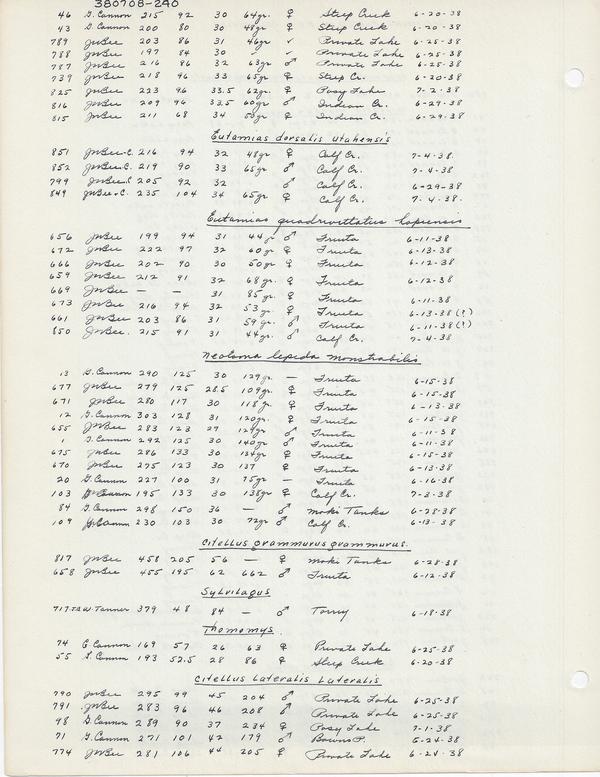 380708-240
46 G. Cannon 215 92 30 64gr. ♀ Steep Creek 6-20-38
43 G. Cannon 200 80 30 48gr ♀ Steep Creek 6-20-38
789 JwBee 203 86 31 46gr ✓ Private Lake 6-25-38
788 JwBee 197 84 30 ✓ Private Lake 6-25-38
787 JwBee 216 86 32 63gr ♂ Private Lake 6-25-38
739 JwBee 218 96 33 65gr ♀ Steep Cr. 6-20-38
825 JwBee 223 96 33.5 62gr. ♀ Posy Lake 7-2-38
816 JwBee 209 96 33.5 60gr ♂ Indian Cr. 6-29-38
815 JwBee 211 68 34 58gr ♀ Indian Cr. 6-29-38
Eutamias dorsalis utahensis
851 JwBee-C. 216 94 32 48gr ♀ Calf Cr. 7-4-38.
852 JwBee.C. 219 90 33 65gr ♂ Calf Cr. 7-4-38
799 JwBee.C 205 92 32 ♂ Calf Cr. 6-29-38
849 JwBee-C. 235 104 34 65gr ♀ Calf Cr. 7.4.38
Eutamias quadrivittatus hopiensis
656 JwBee 199 94 31 44gr ♂ Fruita 6-11-38
672 JwBee 222 97 32 60gr ♀ Fruita 6-13-38
666 JwBee 202 90 30 50gr ♀ Fruita 6-12-38
659 JwBee 212 91 32 68gr. ♀ Fruita 6-12-38
669 JwBee — — 31 85gr. ♀ Fruita 6-11-38
673 JwBee 216 94 32 53gr. ♀ Fruita 6-13-38(?)
661 JwBee 203 86 31 59gr. ♂ Fruita 6-11-38(?)
850 JwBee. 215 91 31 44gr. ♂ Calf Cr. 7-4-38
Neotoma lepida monstrabilis
13 G. Cannon 290 125 30 129gr. — Fruita 6-15-38
677 JwBee 279 125 28.5 109gr. ♀ Fruita 6-15-38
671 JwBee 280 117 30 118gr. ♀ Fruita 6-13-38
12 G. Cannon 303 128 31 120gr. ♀ Fruita 6-15-38
655 JwBee 283 123 27 129gr ♂ Fruita 6-11-38
1 G. Cannon 292 125 30 140gr ♂ Fruita 6-11-38
675 JwBee 286 133 30 134gr ♀ Fruita 6-15-38
670 JwBee 275 123 30 137 ♀ Fruita 6-13-38
20 G. Cannon 227 100 31 75gr — Fruita 6-16-38
103 G. Cannon 195 133 30 138gr ♀ Calf Cr. 7-3-38
84 G. Cannon 298 150 36 — ♂ Moki Tanks 6-28-38
109 G. Cannon 230 103 30 72gr ♂ Calf Cr. 6-13-38
Citellus grammurus grammurus.
817 JwBee 458 205 56 — ♀ Moki Tanks 6-28-38
658 JwBee 455 195 62 662 ♂ Fruita 6-12-38
Sylvilagus
717 W. Tanner 379 48 84 — ♂ Torrey 6-18-38
Thomomys.
74 G Cannon 169 57 26 63 ♀ Private Lake 6-25-38
55 G. Cannon 193 52.5 28 86 ♀ Steep Creek 6-20-38
Citellus Lateralis Lateralis
790 JwBee 295 99 45 204 ♂ Private Lake 6-25-38
791 JwBee 283 96 46 208 ♂ Private Lake 6-25-38
98 G. Cannon 289 90 37 234 ♀ Posy Lake 7-1-38
71 G. Cannon 271 101 42 179 ♂ Bowns P. 6-24-38
774 JwBee 281 106 44 205 ♀ Private Lake 6-24-38